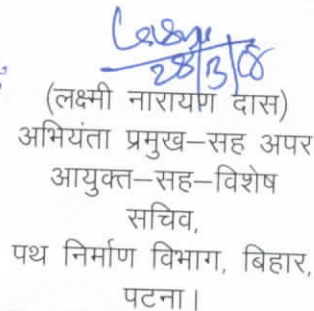 28/3/08
(लक्ष्मी नारायण दास)
अभियंता प्रमुख–सह अपर
आयुक्त–सह–विशेष
सचिव,
पथ निर्माण विभाग, बिहार,
पटना।